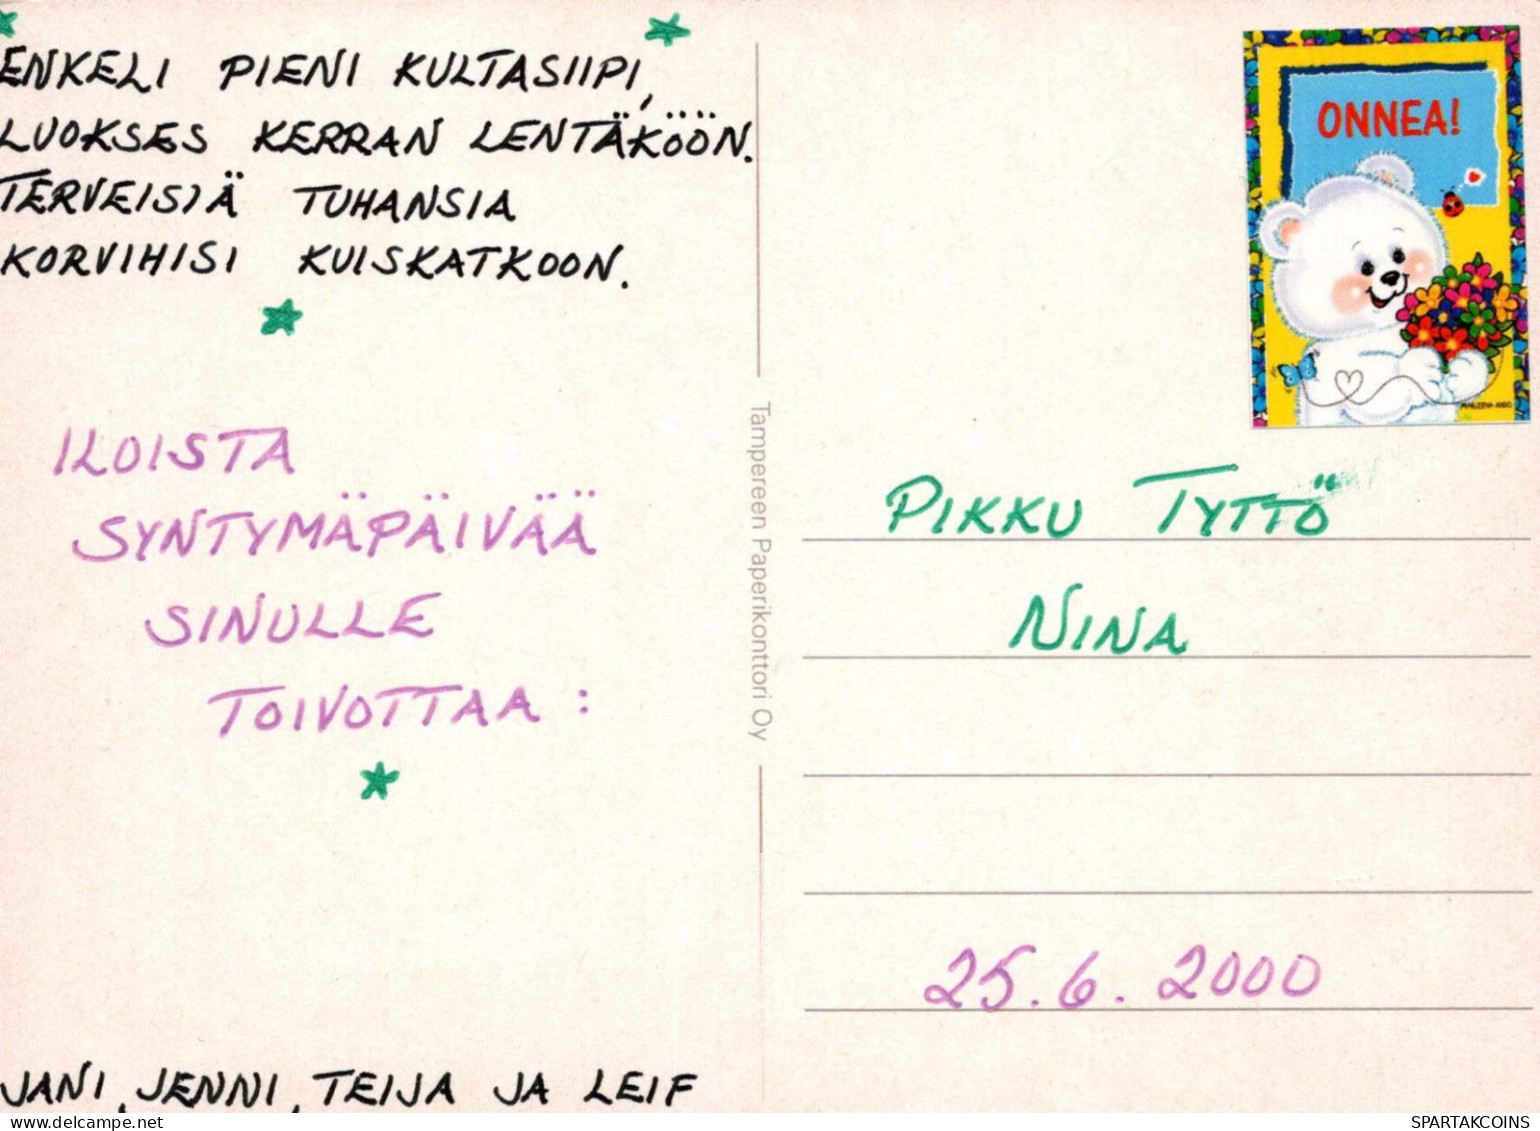 ENKELI PIENI KULTASIIPI,
LUOKSES KERRAN LENTÄKÖÖN.
TERVEISIÄ TUHANSIA
KORVIHISI KUISKATKOON.
ILOISTA
SYNTYMÄPÄIVÄÄ
SINULLE
TOIVOTTAA:
JANI, JENNI, TEIJA JA LEIF
Tampereen Paperikonttori Oy
ONNEA!
PIKKU TYTTÖ
NINA
25.6.2000
delcampe.net
SPARTAKCOINS